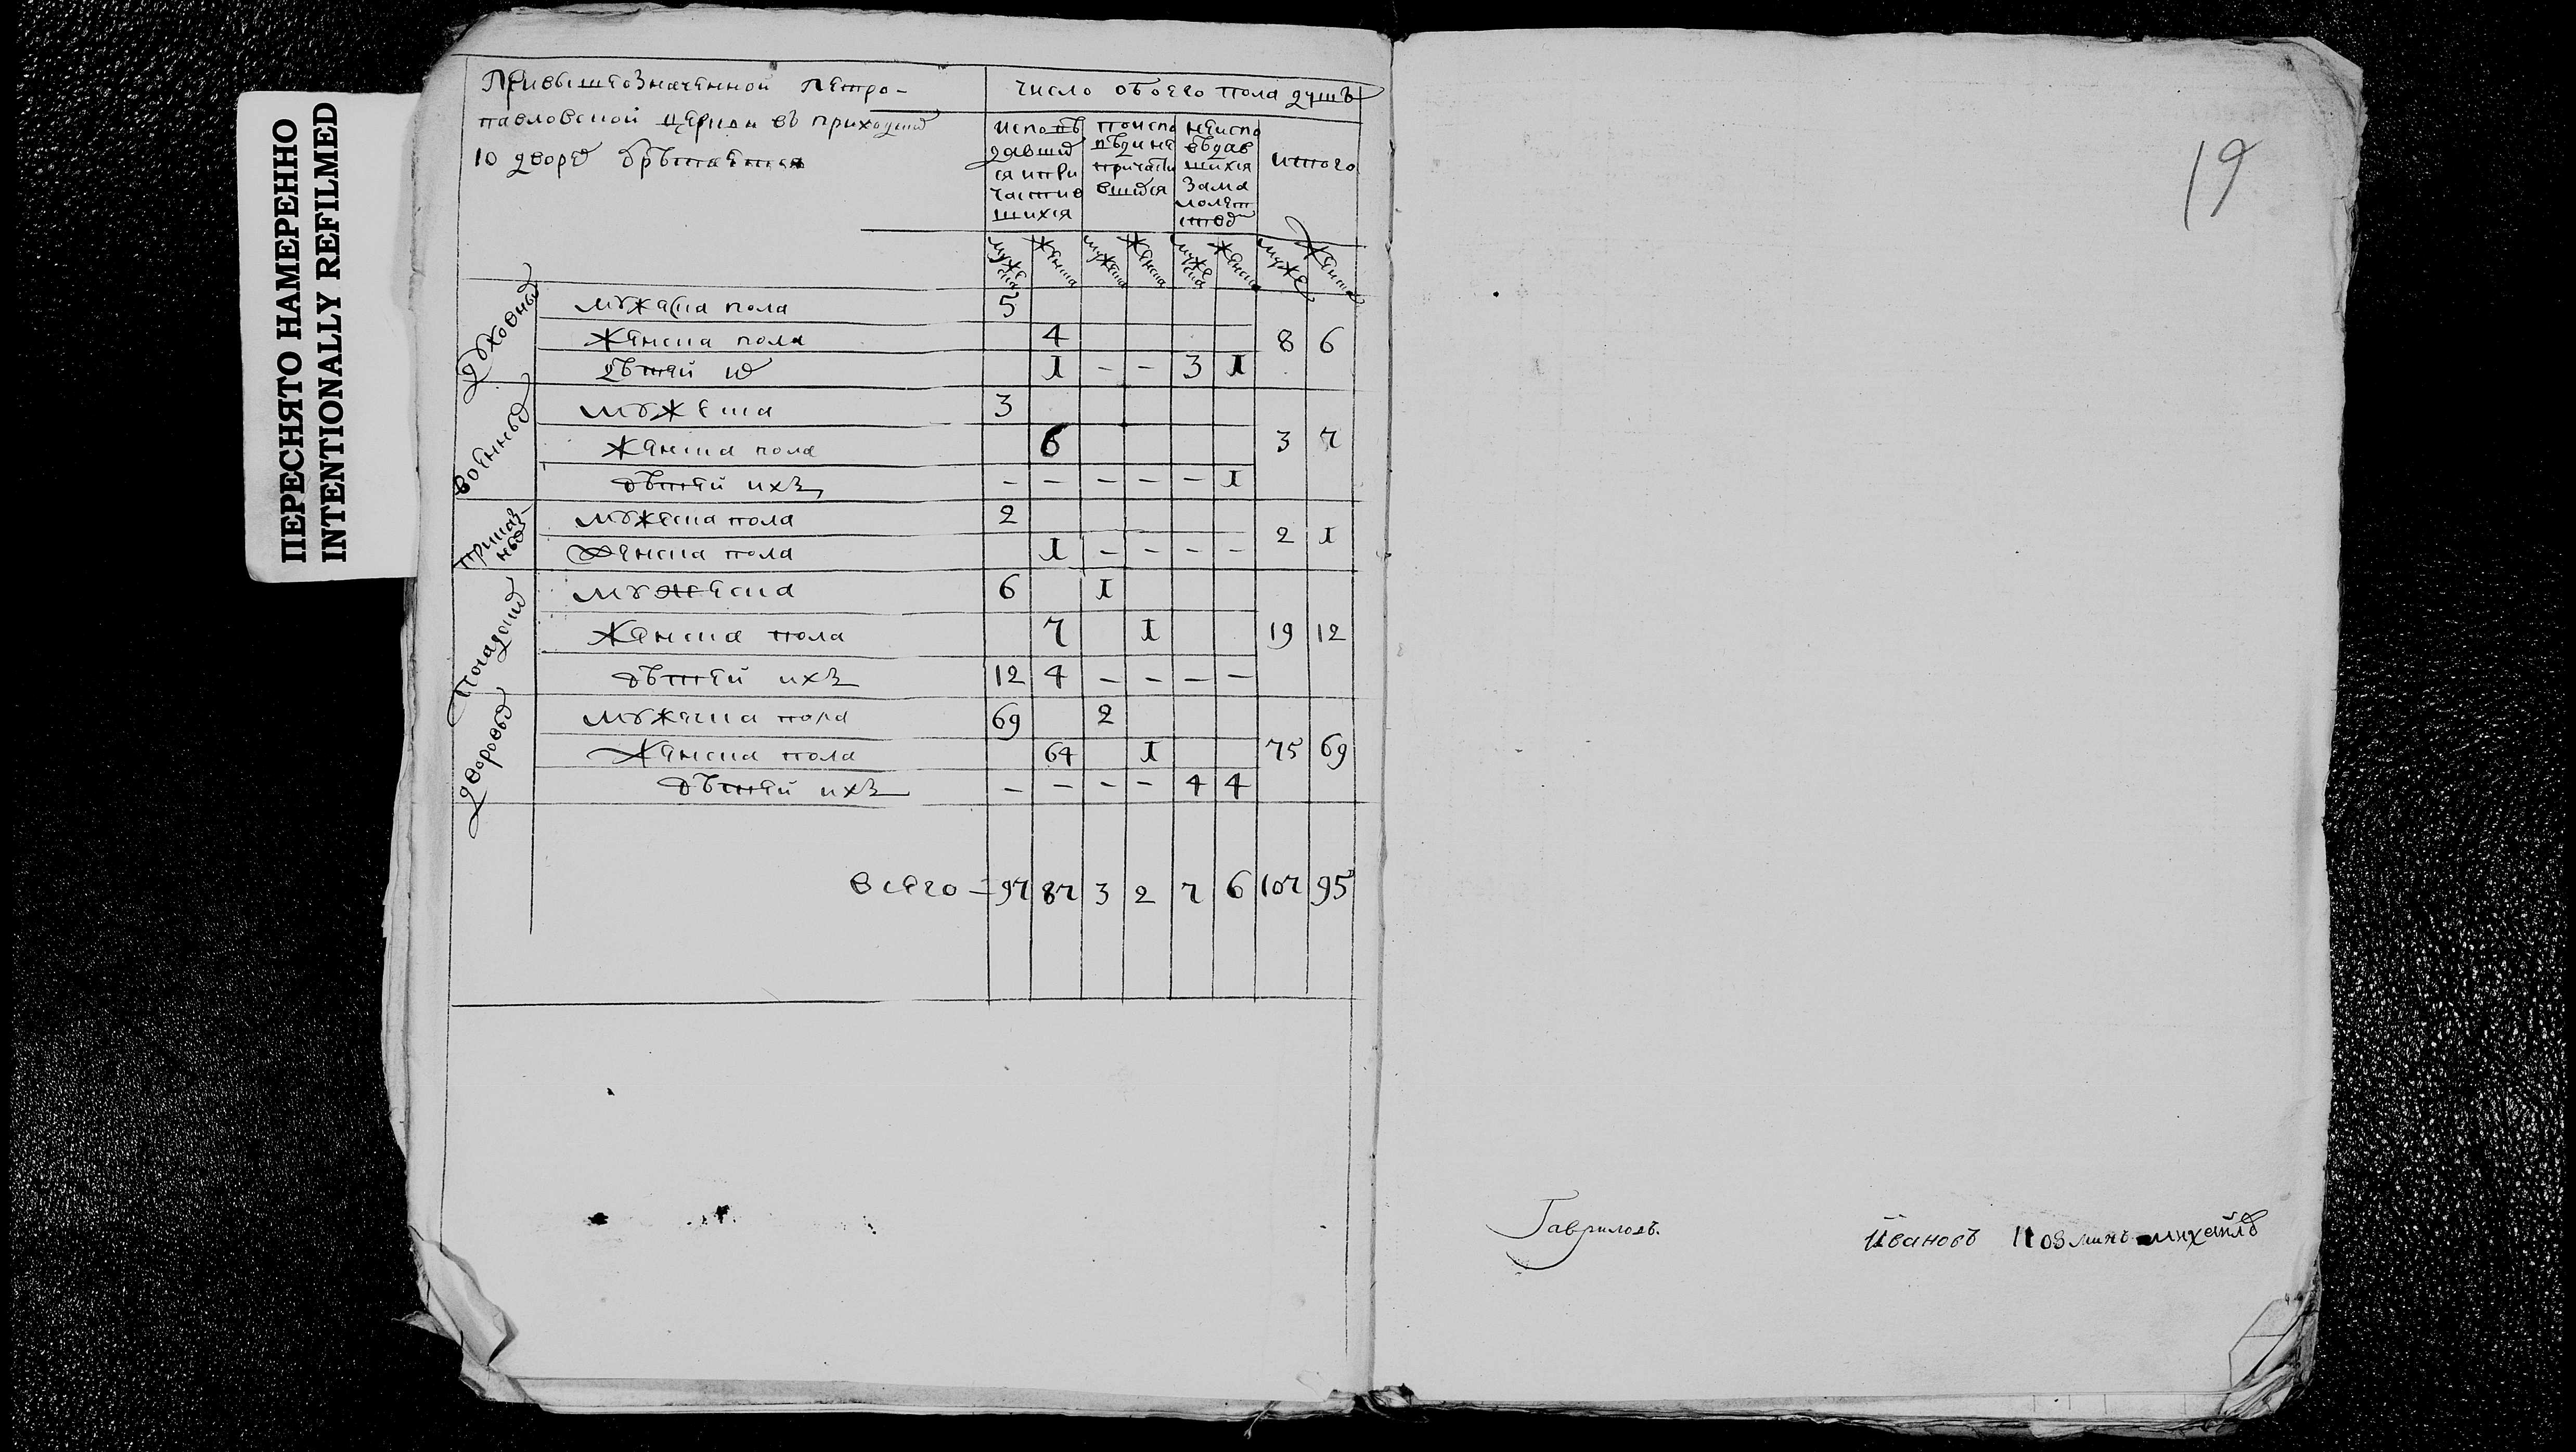 ПЕРЕСНЯТО НАМЕРЕННО
INTENTIONALLY REFILMED
При вышеозначенной Петро-
павловской церкви в приходе
10 дворов
число обоего пола душъ
исповѣ
давши
ся и при
частив
шихся
по испо
вѣди не
причасти
вшихся
не испо
вѣдав
шихся
за ма
лолет
ством
итого
мужеска женска мужеска женска мужеска женска мужеска женска
духовных
мужеска пола 5
женска пола 4 8 6
детей их 1 - - 3 1
военных
мужеска 3
женска пола 6 3 7
детей ихъ - - - - - 1
приказ
ных
мужеска пола 2 2 1
женска пола 1 - - - -
посадских
мужеска 6 1
женска пола 7 1 19 12
детей ихъ 12 4 - - - -
дворовых
мужеска пола 69 2
женска пола 64 1 75 69
детей ихъ - - - - 4 4
всего - 97 87 3 2 7 6 107 95
19
Гавриловъ.
Ивановъ Козминъ михайлъ